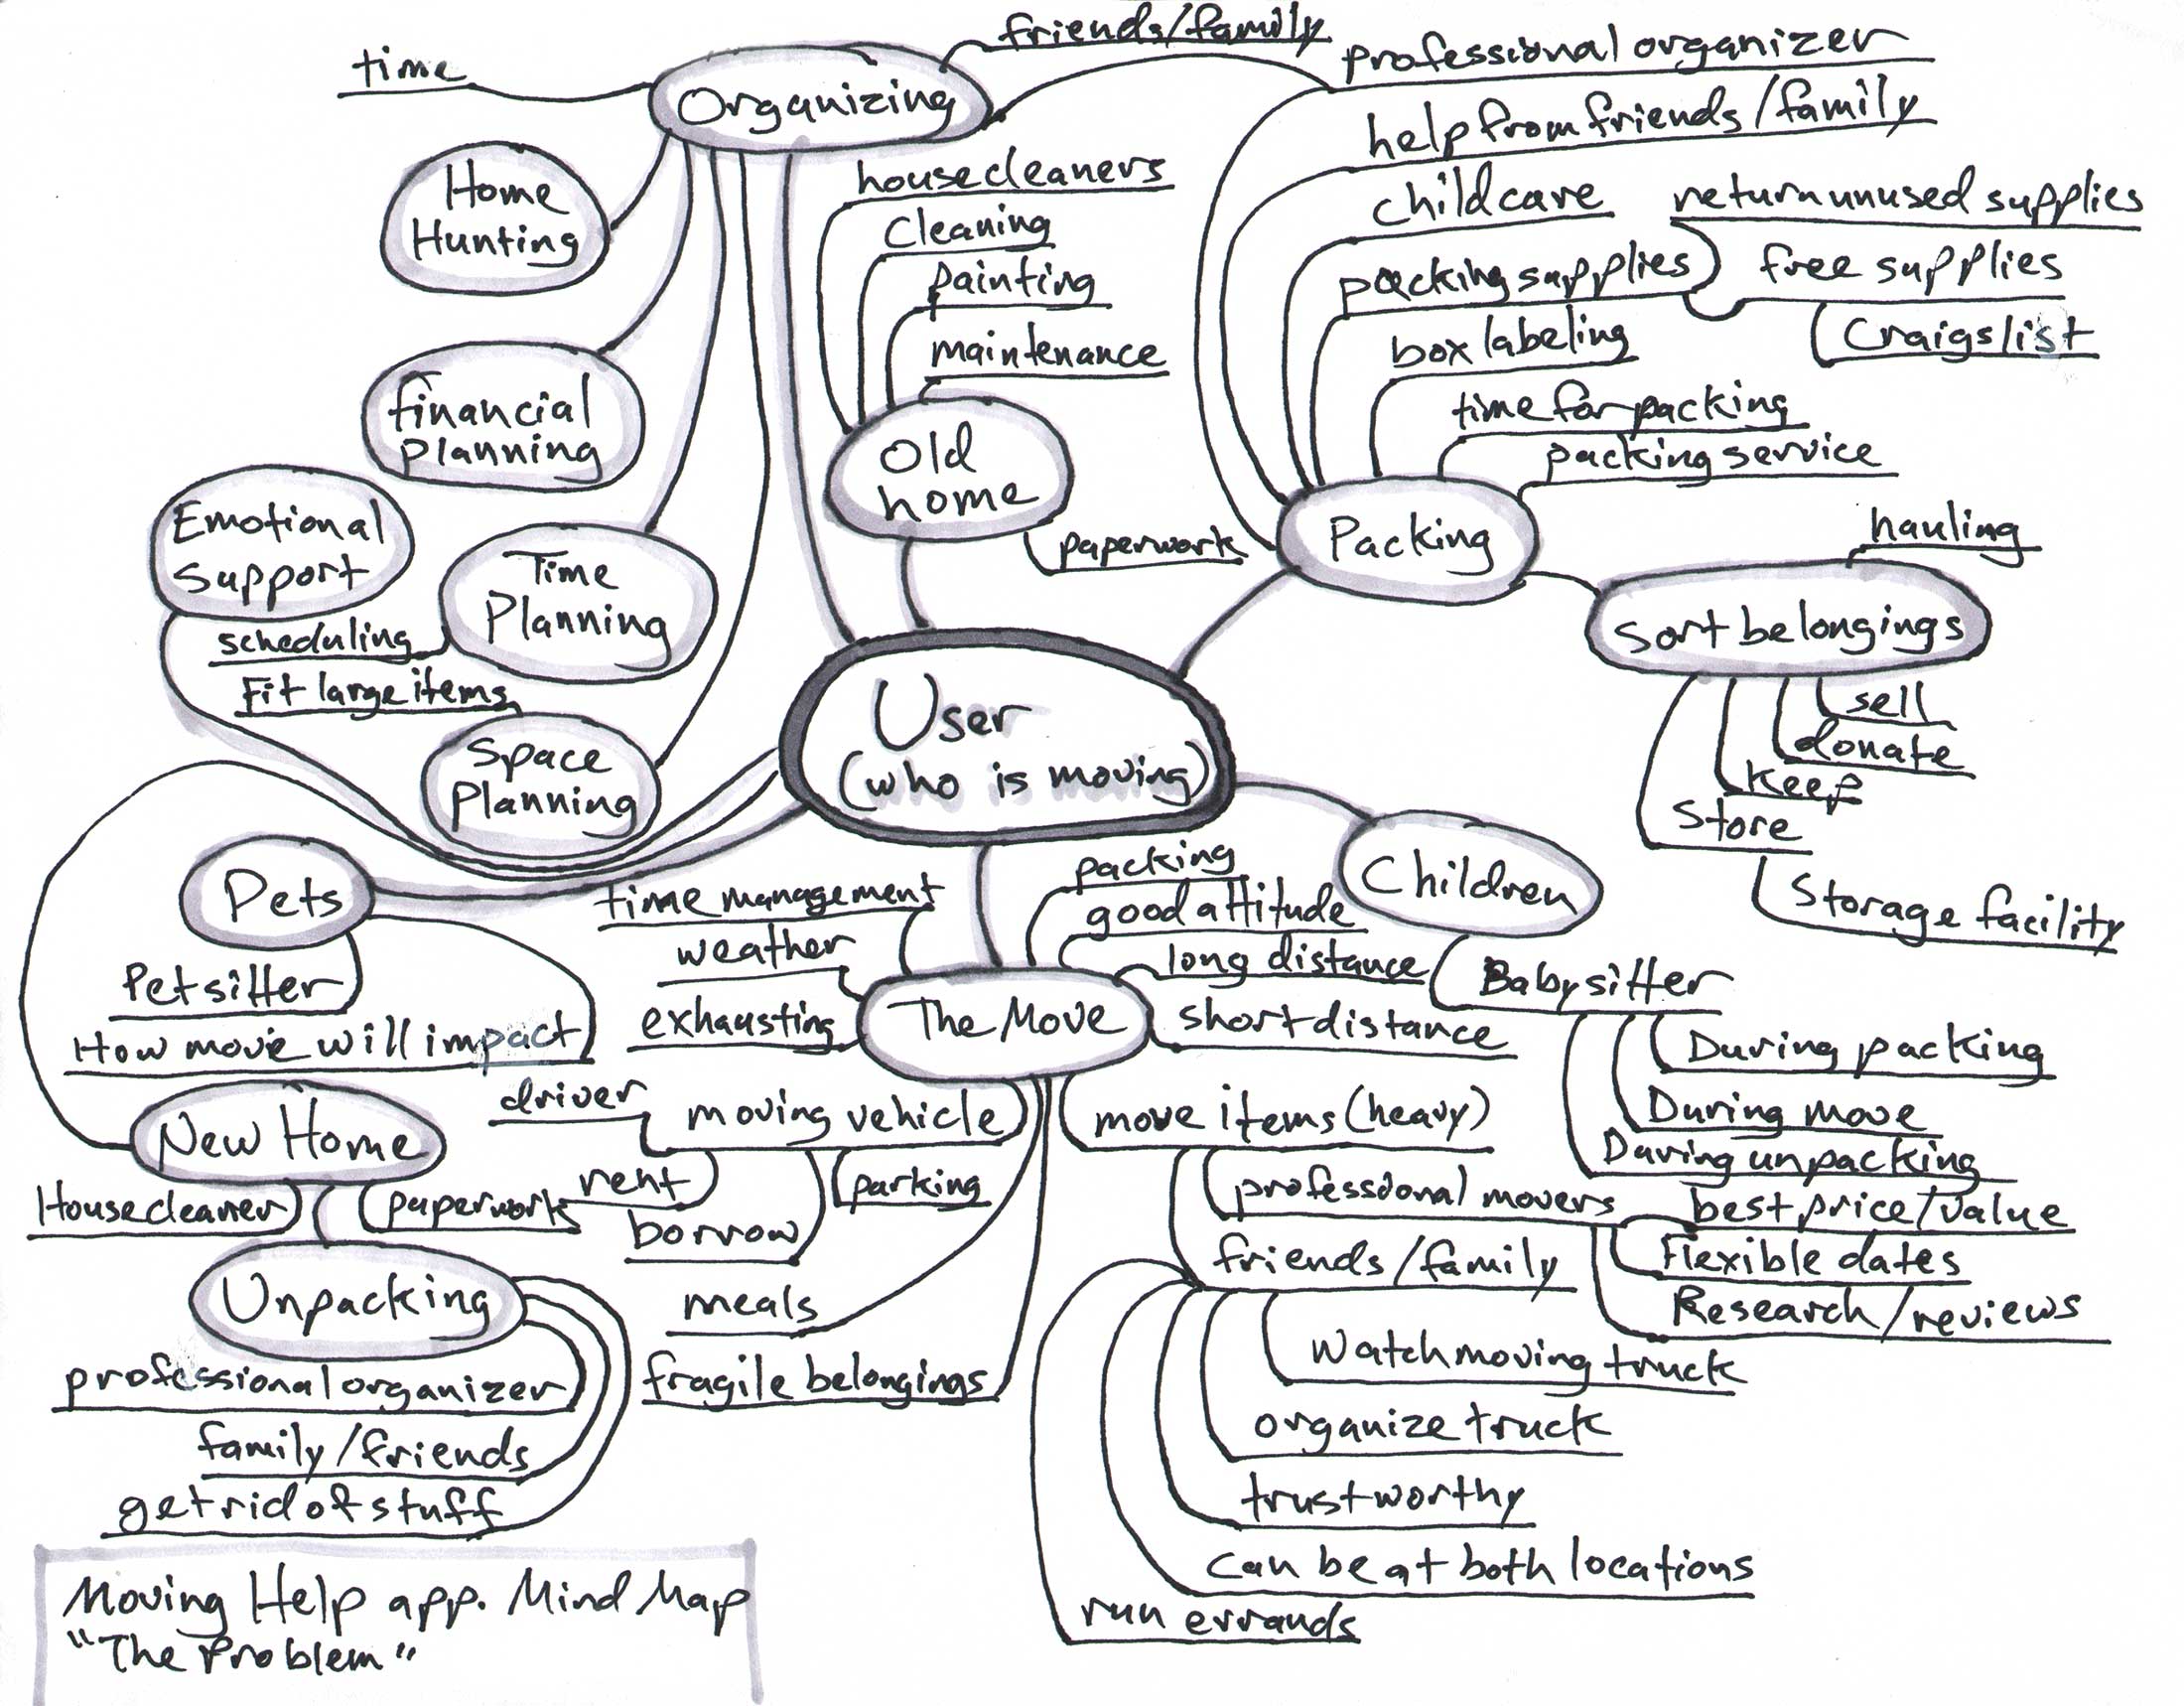 time
friends/family
professional organizer
Organizing
help from friends/family
housecleaners
childcare
return unused supplies
Home
Hunting
Cleaning
packing supplies
free supplies
painting
box labeling
Craigslist
maintenance
time for packing
financial
planning
packing service
Old
home
Emotional
Support
Packing
hauling
paperwork
Time
Planning
Sort belongings
scheduling
Fit large items
sell
donate
Keep
Store
Storage facility
User
(who is moving)
Space
Planning
Children
packing
good attitude
long distance
short distance
Pets
time management
weather
exhausting
The Move
Babysitter
During packing
During move
During unpacking
Petsitter
How move will impact
New Home
Housecleaner
paperwork
driver
moving vehicle
rent
borrow
parking
move items (heavy)
professional movers
best price/value
Flexible dates
Research/reviews
friends/family
Unpacking
meals
fragile belongings
Watch moving truck
organize truck
trustworthy
can be at both locations
run errands
professional organizer
family/friends
get rid of stuff
Moving Help app. Mind Map
"The Problem"